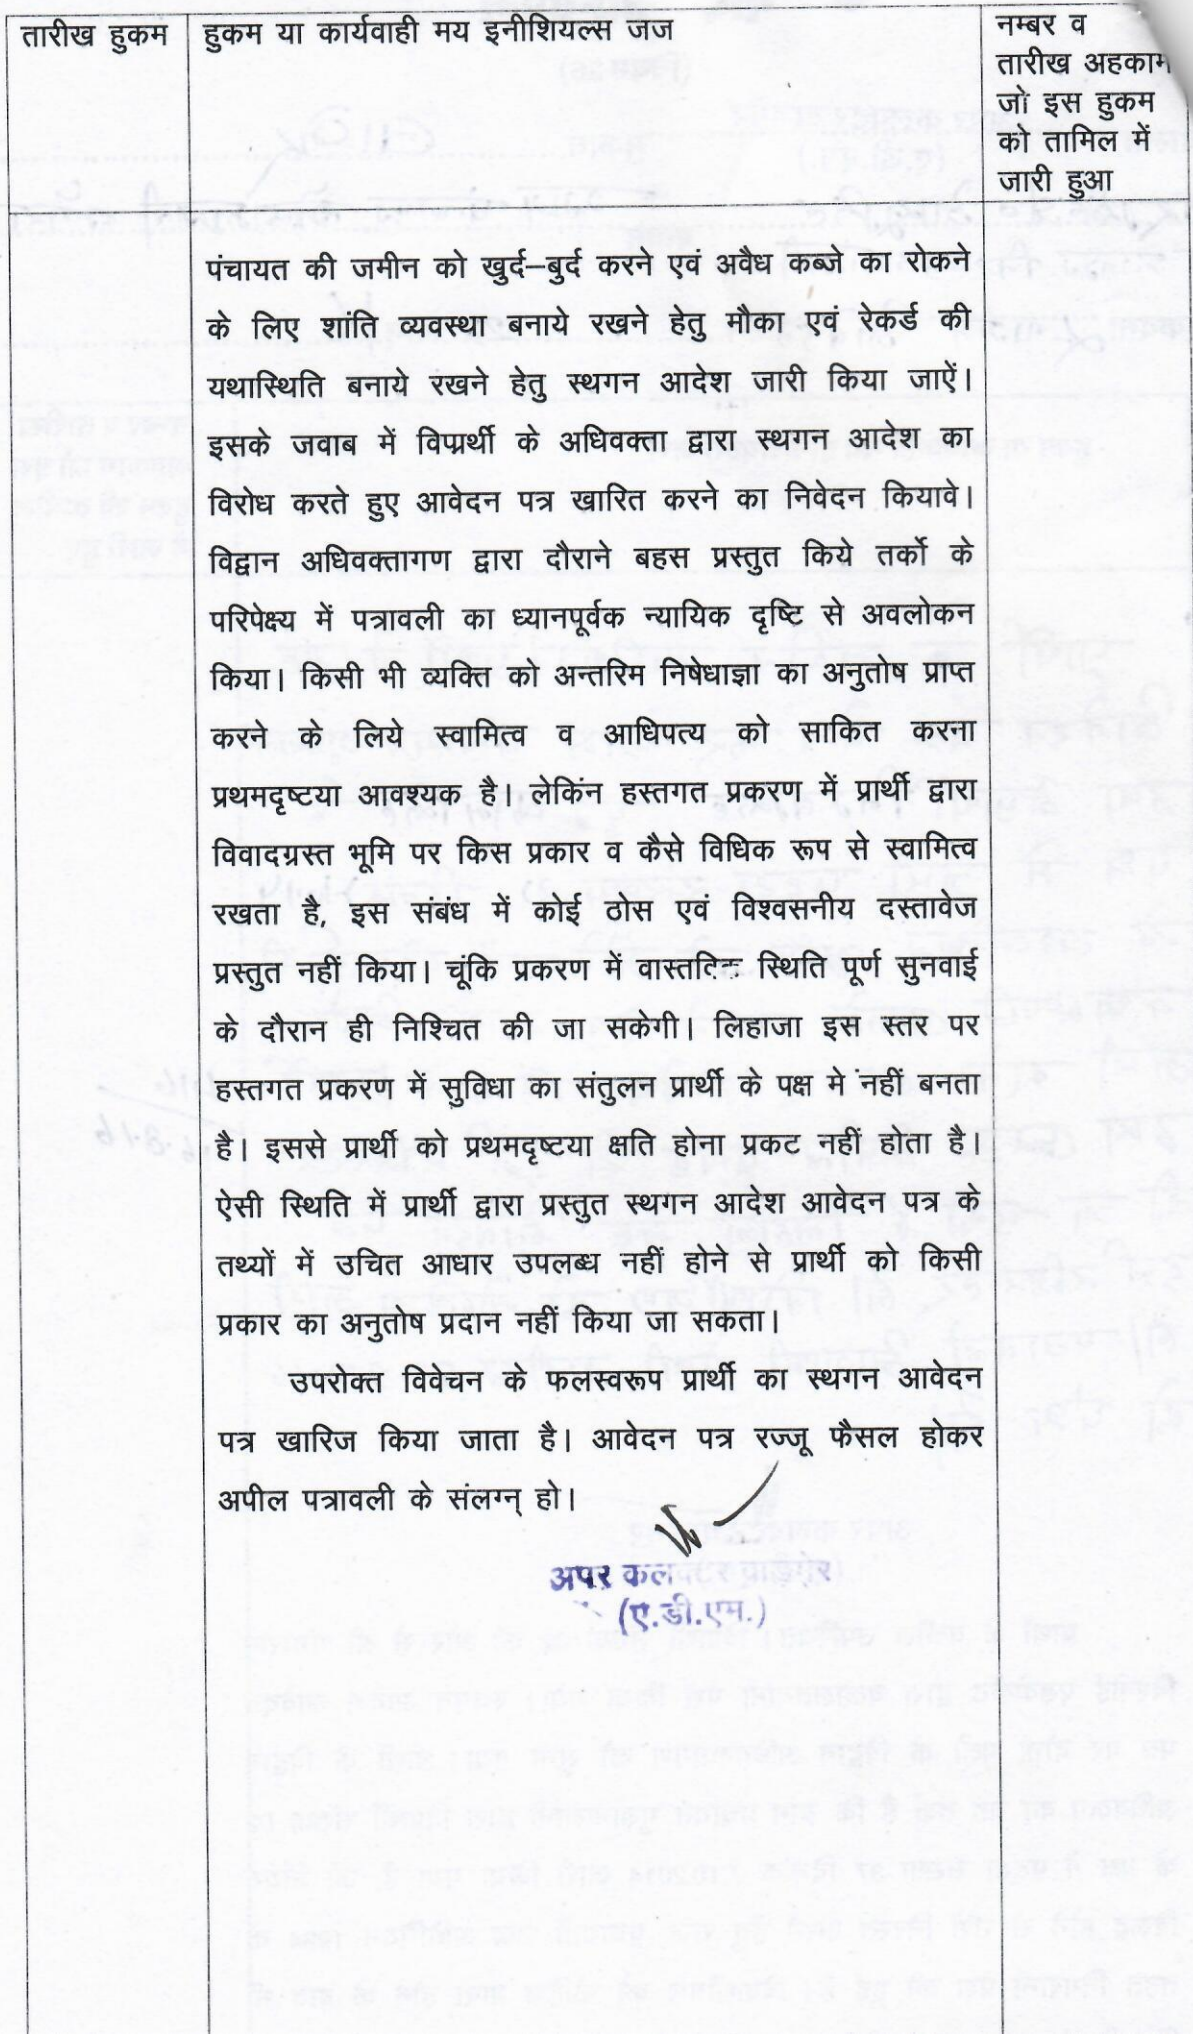 तारीख हुकम
हुकम या कार्यवाही मय इनीशियल्स जज
नम्बर व
तारीख अहकाम
जो इस हुकम
को तामिल में
जारी हुआ
पंचायत की जमीन को खुर्द–बुर्द करने एवं अवैध कब्जे का रोकने
के लिए शांति व्यवस्था बनाये रखने हेतु मौका एवं रेकर्ड की
यथास्थिति बनाये रखने हेतु स्थगन आदेश जारी किया जाऐं।
इसके जवाब में विप्रार्थी के अधिवक्ता द्वारा स्थगन आदेश का
विरोध करते हुए आवेदन पत्र खारित करने का निवेदन कियावे।
विद्वान अधिवक्तागण द्वारा दौराने बहस प्रस्तुत किये तर्को के
परिपेक्ष्य में पत्रावली का ध्यानपूर्वक न्यायिक दृष्टि से अवलोकन
किया। किसी भी व्यक्ति को अन्तरिम निषेधाज्ञा का अनुतोष प्राप्त
करने के लिये स्वामित्व व आधिपत्य को साकित करना
प्रथमदृष्टया आवश्यक है। लेकिंन हस्तगत प्रकरण में प्रार्थी द्वारा
विवादग्रस्त भूमि पर किस प्रकार व कैसे विधिक रूप से स्वामित्व
रखता है, इस संबंध में कोई ठोस एवं विश्वसनीय दस्तावेज
प्रस्तुत नहीं किया। चूंकि प्रकरण में वास्तविक स्थिति पूर्ण सुनवाई
के दौरान ही निश्चित की जा सकेगी। लिहाजा इस स्तर पर
हस्तगत प्रकरण में सुविधा का संतुलन प्रार्थी के पक्ष मे नहीं बनता
है। इससे प्रार्थी को प्रथमदृष्टया क्षति होना प्रकट नहीं होता है।
ऐसी स्थिति में प्रार्थी द्वारा प्रस्तुत स्थगन आदेश आवेदन पत्र के
तथ्यों में उचित आधार उपलब्ध नहीं होने से प्रार्थी को किसी
प्रकार का अनुतोष प्रदान नहीं किया जा सकता।
उपरोक्त विवेचन के फलस्वरूप प्रार्थी का स्थगन आवेदन
पत्र खारिज किया जाता है। आवेदन पत्र रज्जू फैसल होकर
अपील पत्रावली के संलग्न् हो।
अपर कलक्टर बाड़मेर
(ए.डी.एम.)